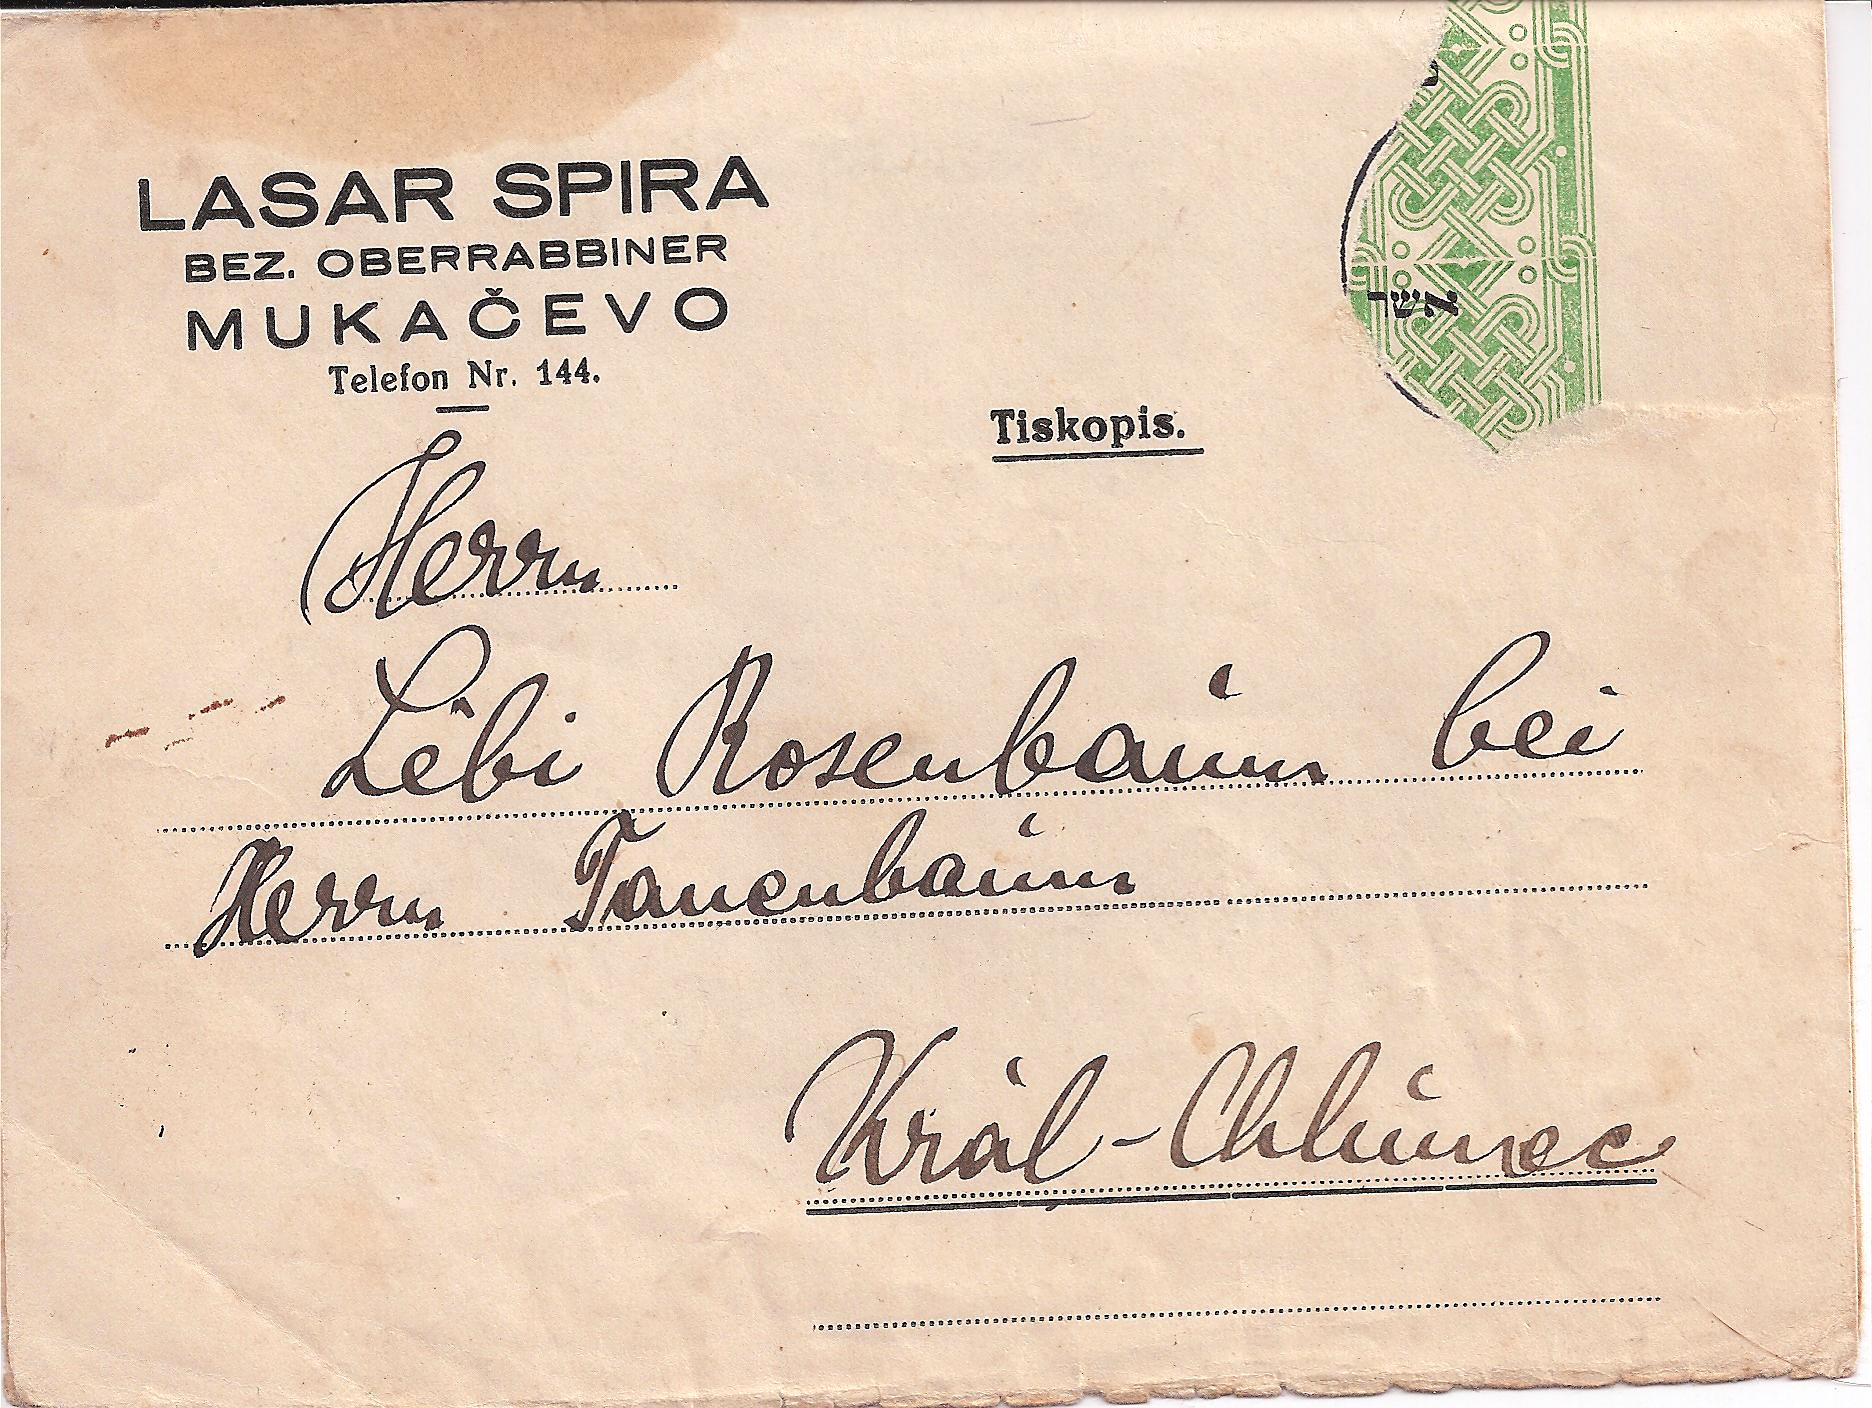 LASAR SPIRA
BEZ. OBERRABBINER
MUKAČEVO
Telefon Nr. 144.
Tiskopis.
Herrn
Lebi Rosenbaum bei
Herrn Tanenbaum
Král-Chlumec
אשר